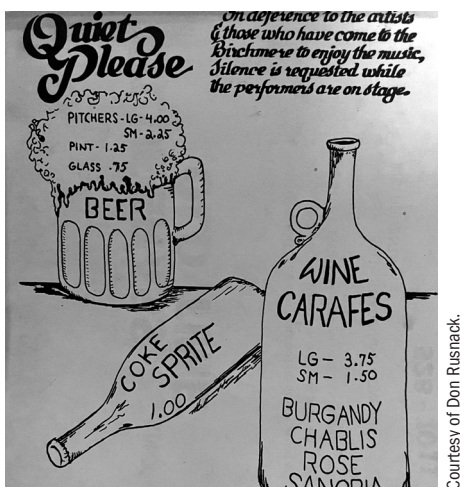 Quiet
Please
In deference to the artists
& those who have come to the
Birchmere to enjoy the music,
Silence is requested while
the performers are on stage.
PITCHERS-LG-4.00
SM-2.25
PINT-1.25
GLASS .75
BEER
COKE
SPRITE
1.00
WINE
CARAFES
LG- 3.75
SM- 1.50
BURGANDY
CHABLIS
ROSE
SANGRIA
Courtesy of Don Rusnack.